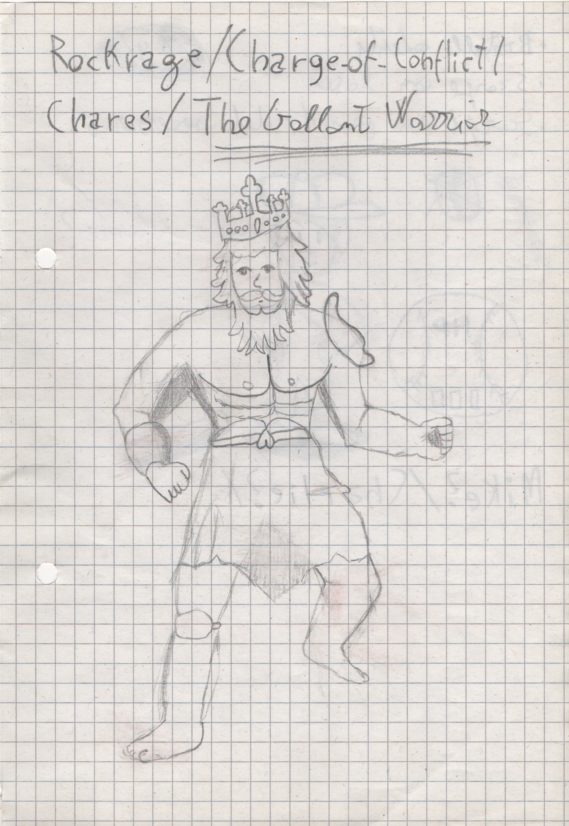 Rockrage/Charge-of-Conflict/
Chares/The Gallant Warrior